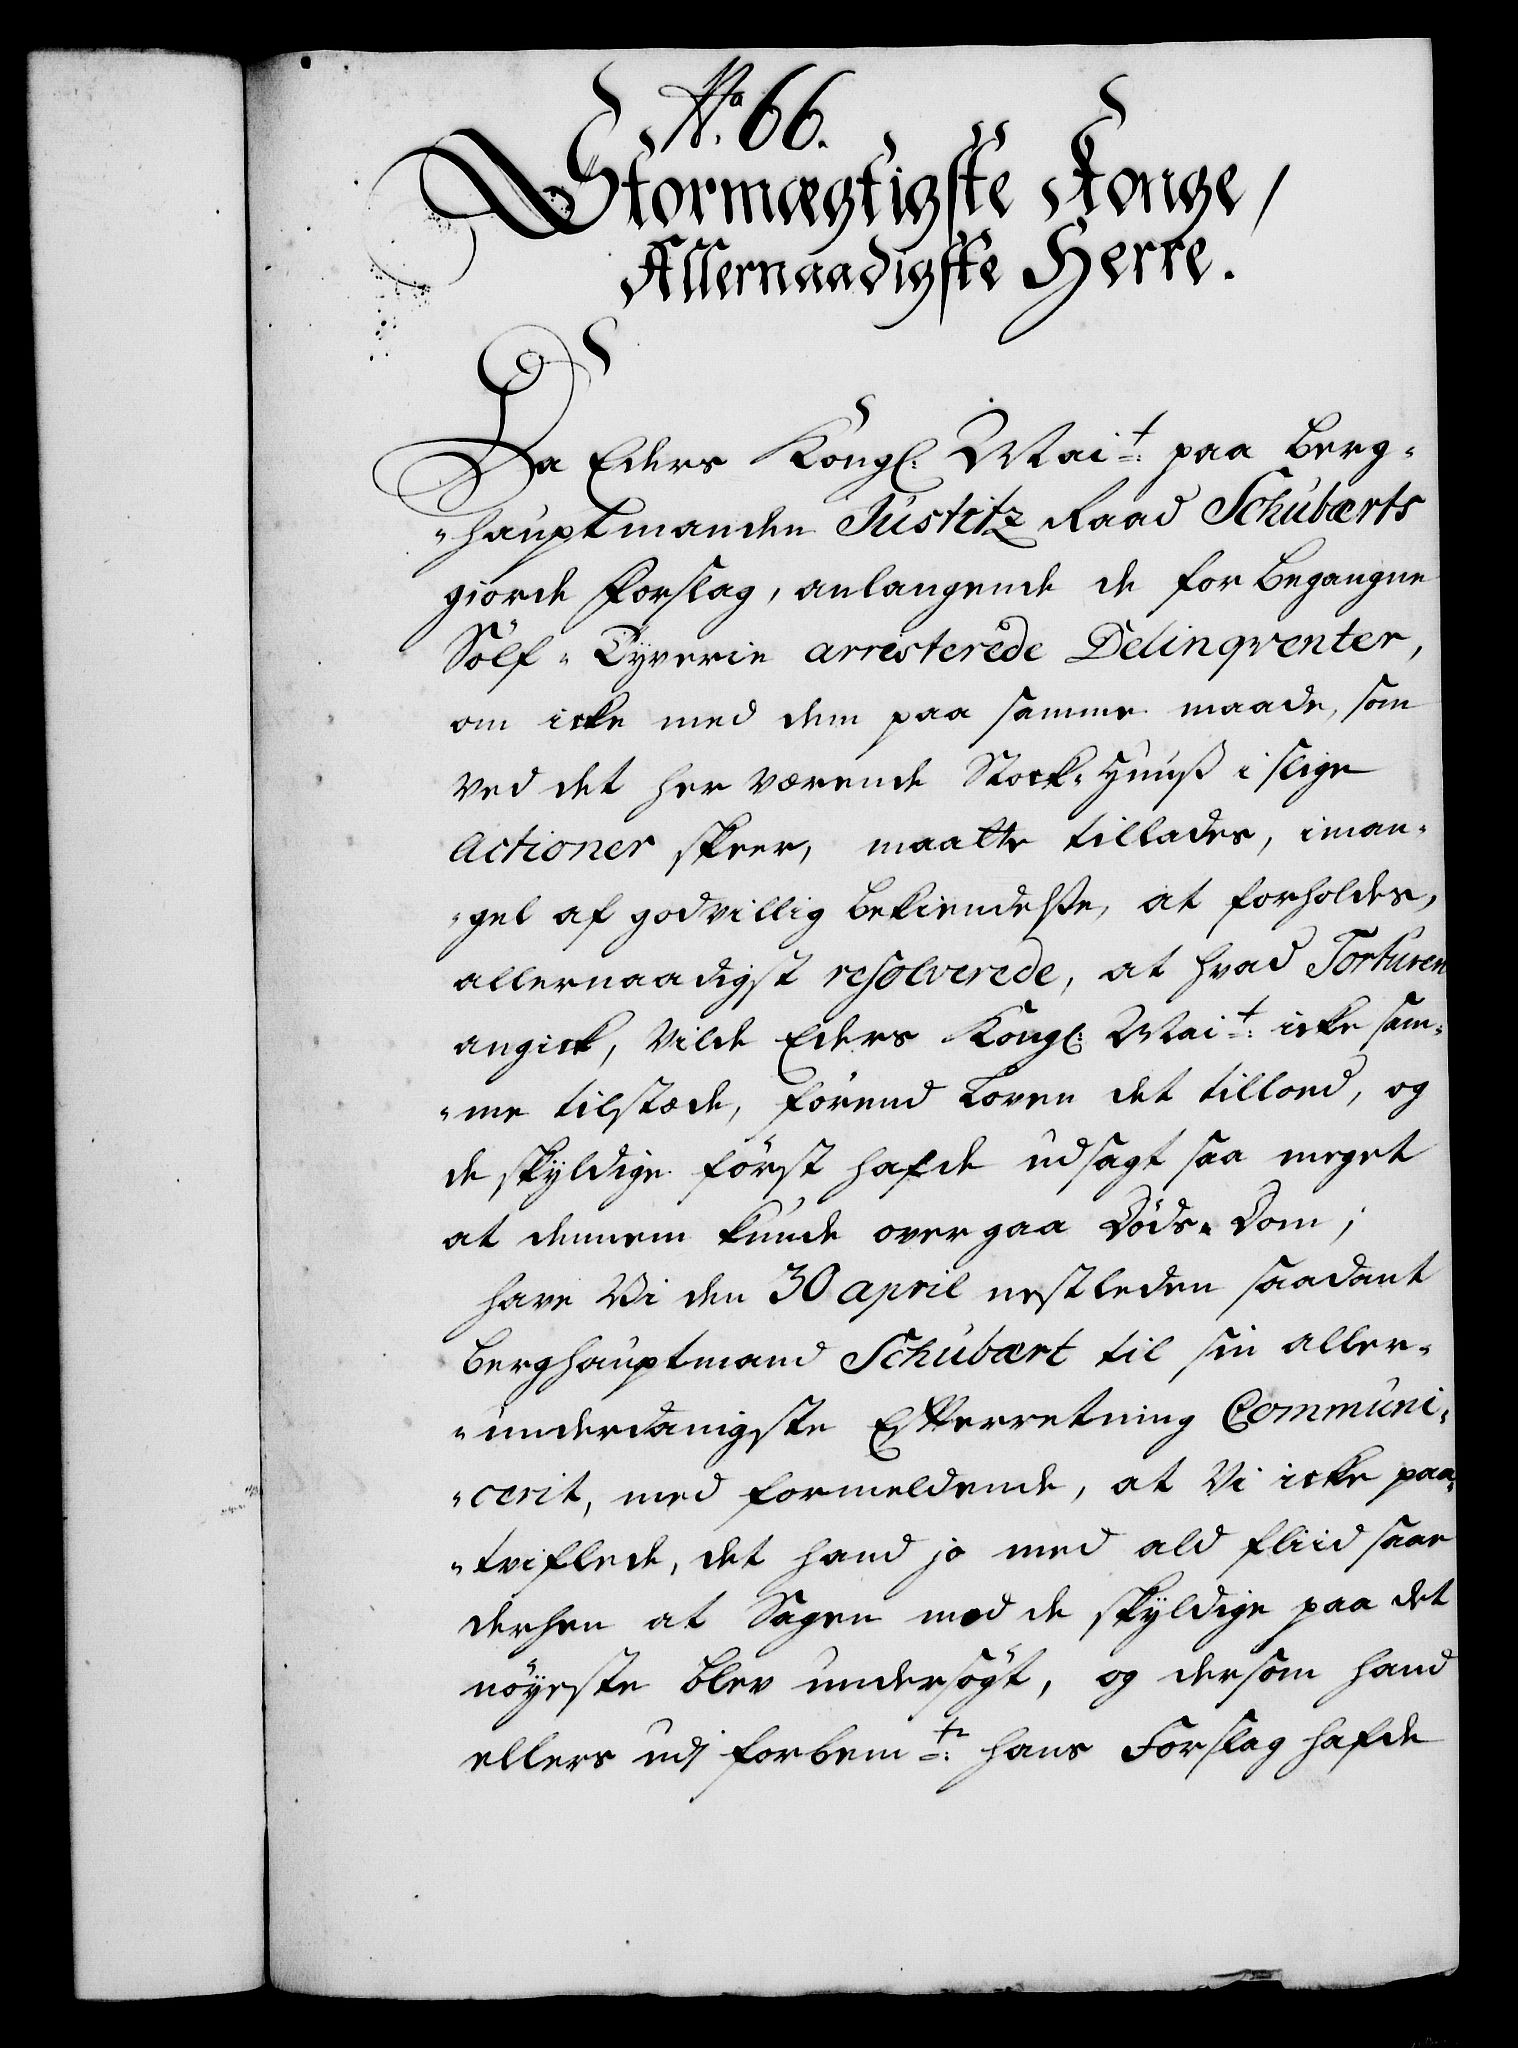 No. 66.
Stormægtigste Konge,
Allernaadigste Herre.
Da Eders Kongl: Mait: paa Berg-
-hauptmanden Justitz Raad Schubærts
giorde Forslag, anlangende de for begangne
Sölf-Tyverie arresterede Delinqventer,
om icke med dem paa samme maade, som
ved det her værende Stock-Huuß i slige
Actioner skeer, maatte tillades, i man-
-gel af godvillig bekiendelße, at forholdes,
allernaadigst resolverede, at hvad Torturen
angick, vilde Eders Kongl: Mait: icke sam-
-me tilstæde, förend Loven det tillod, og
de skyldige först hafde udsagt saa meget
at dennem kunde overgaa Döds-Dom;
have Vi den 30 april nestleden saadant
Berghauptmand Schubært til sin aller-
-underdanigste Efterretning Communi-
-cerit, med formeldende, at Vi icke paa-
-tviflede, det hand jo med ald fliid saae
derhen at Sagen med de skyldige paa det
nöyeste blev undersögt, og dersom hand
ellers udj forbemte: hans Forslag hafde